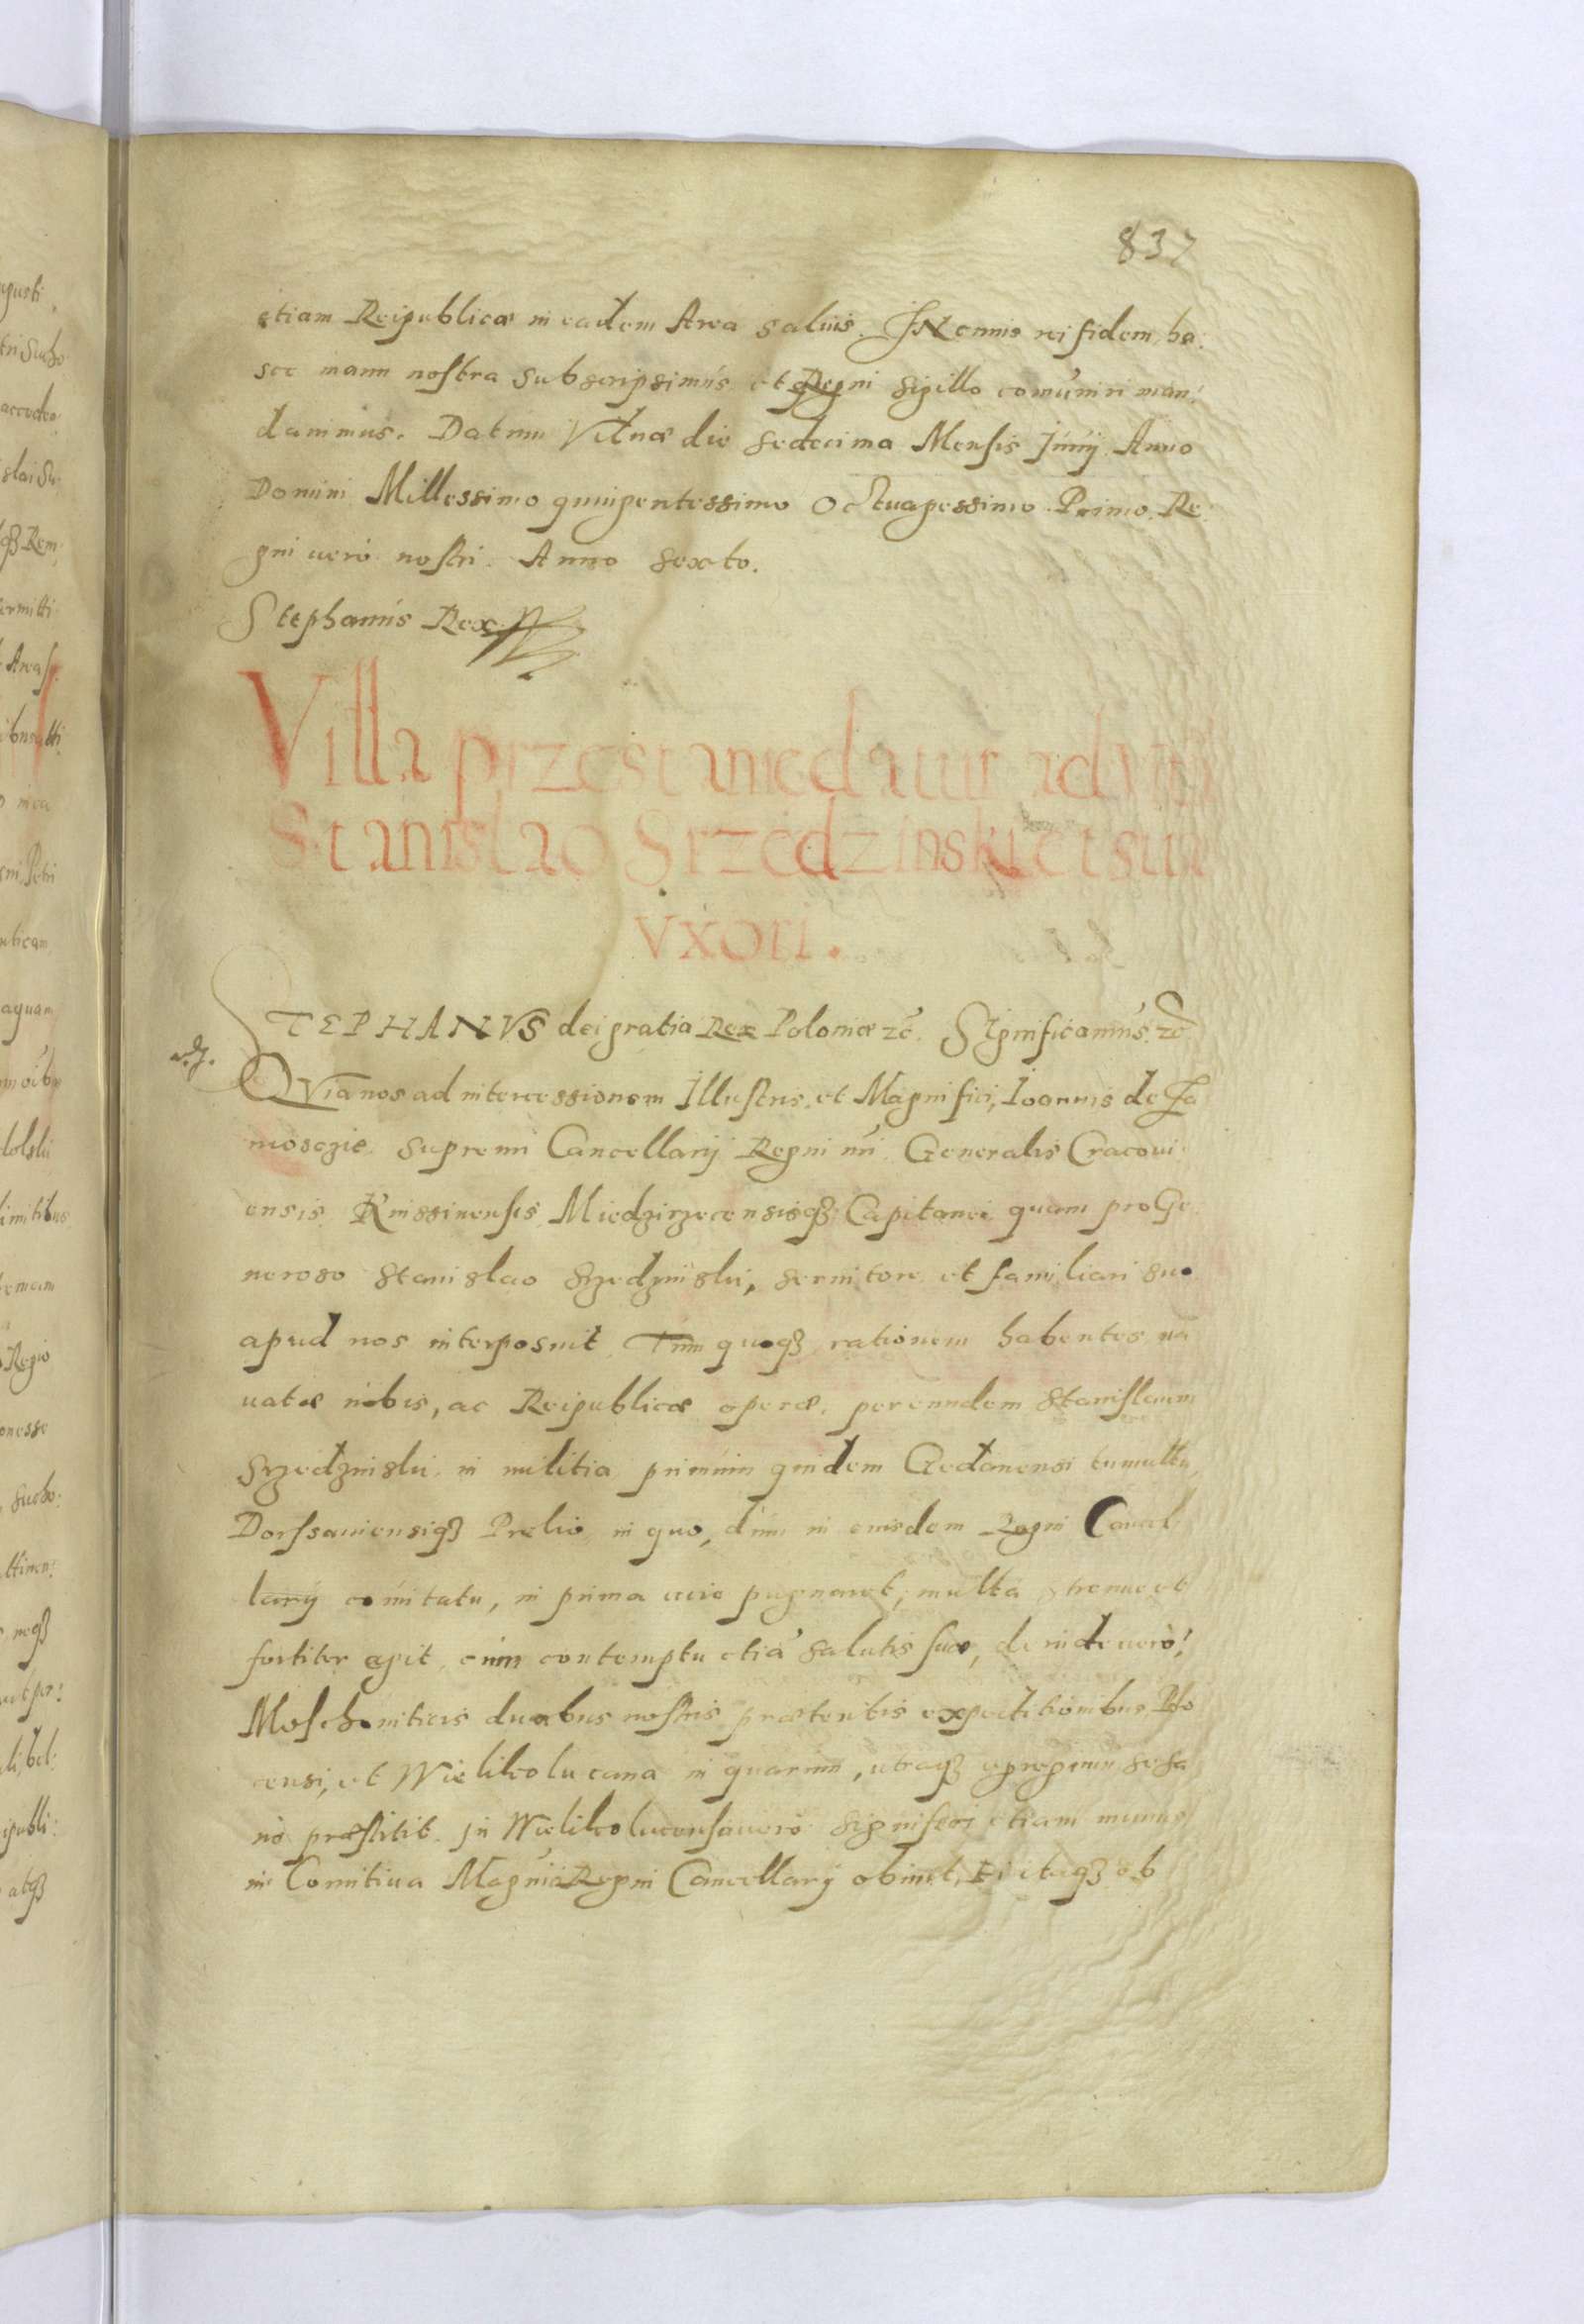 837
etiam Reipublicæ in eadem Area saluis. IN cuius rei fidem ha:
sce manu nostra subscripsimus et Regni sigillo comūniri man:
dauimus. Datum Vilnæ die sedecima Mensis Junij Anno
Domini Millessimo quingentessimo Octuagessimo Primo. Re:
gni uero nostri. Anno sexto.
Stephanus Rex
Villa przestanie datur ad
Stanislao Srzedzinski et suæ
vxori.
STEPHANVS dei gratia Rex Poloniæ zc̄. SIgnificamus zc̄
QVia nos ad intercessionem Illustris et Magnifici, Ioannis de Za
mosczie supremi Cancellarij Regni nr̄i Generalis Cracoui:
ensis Knissinensis Miedzirzecensisqꝫ Capitanei quam pro Ge
neroso Stanislao Srzedzinski, seruitore et familiari suo
apud nos interposuit Tum quoqꝫ rationem habentes na
uatæ nobis, ac Reipublicæ operæ, per eundem Stanislaum
Srzedzinski in militia primum quidem Gedanensi tumultu,
Dorssauiensiqꝫ Prelio in quo, dum in eiusdem Regni Cancel:
larij comitatu, in prima acie pugnaret, multa strenue et
fortiter egit cum contemptu etiā salutis suæ, deinde uero
Moschouiticis duabus nostris præteritis expeditionibus Plo
censi, et Wielikolucana in quarum, utraqꝫ egregium se
præstitit. In Wielikolucensi uero signiferi etiam munus
in Comitiua Regni Cancellarij obiuit, Ei itaqꝫ ob